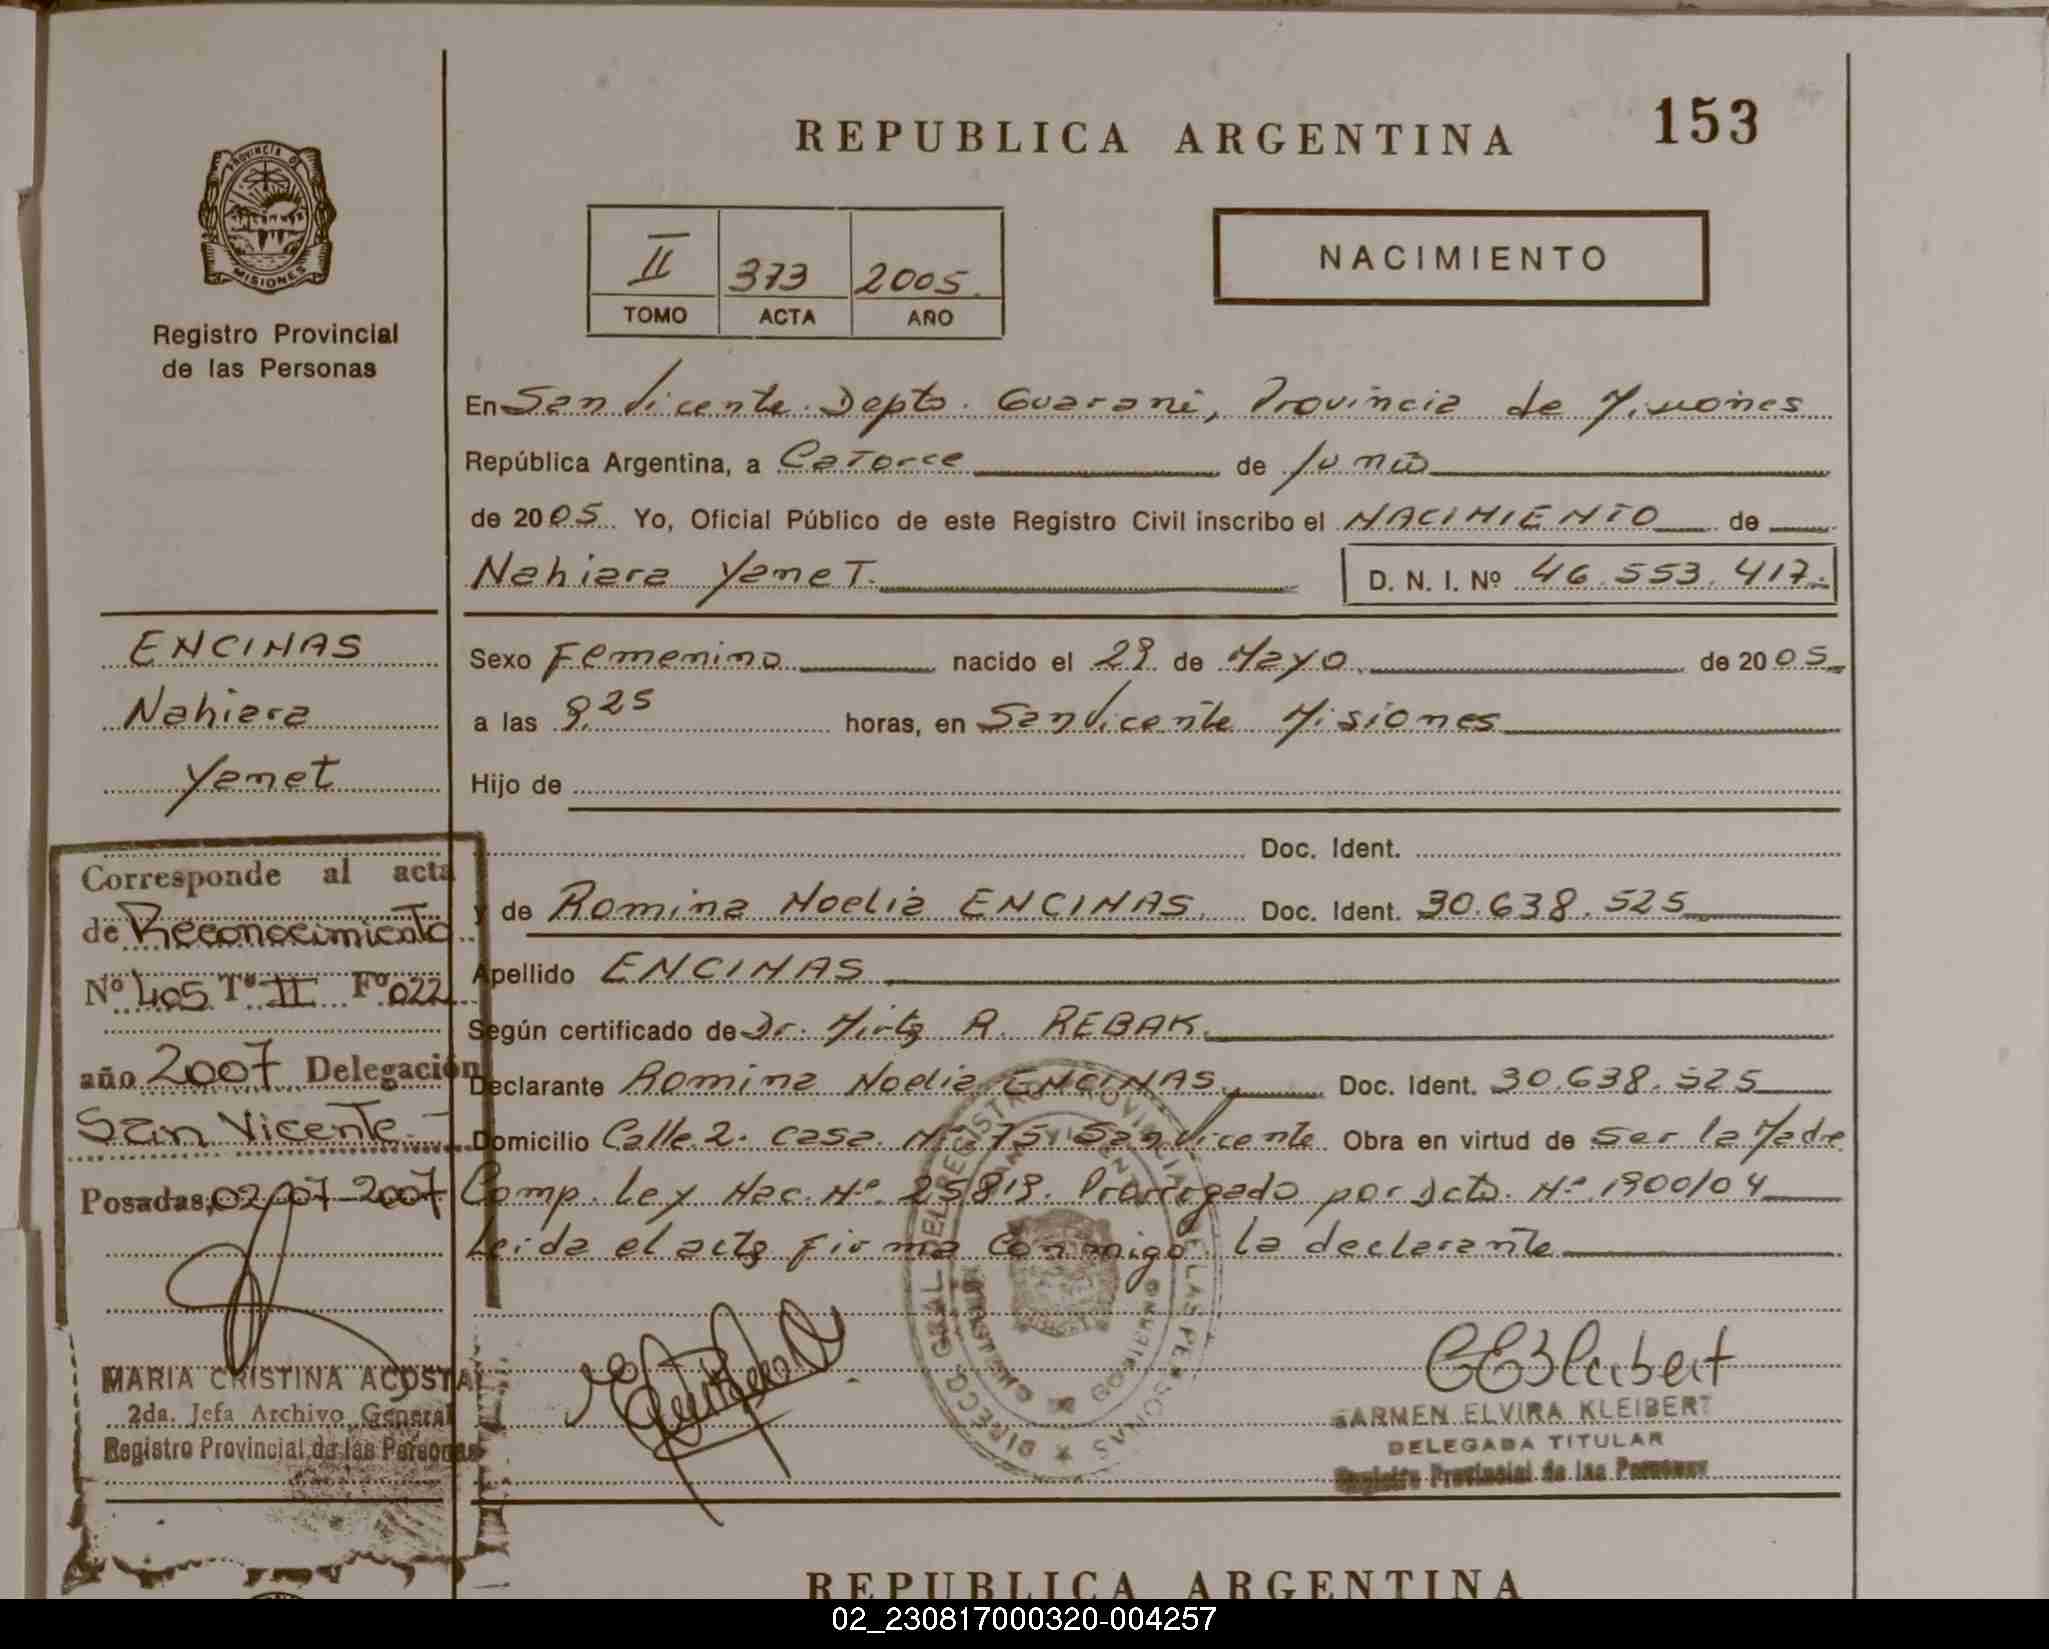 REPUBLICA ARGENTINA
153
PROVINCIA DE
MISIONES
Registro Provincial
de las Personas
II 373 2005
TOMO ACTA AÑO
NACIMIENTO
En San Vicente. Depto. Guarani, Provincia de Misiones
República Argentina, a Catorce de Junio
de 2005 Yo, Oficial Público de este Registro Civil inscribo el NACIMIENTO de
Nahiara Yamet. D. N. I. Nº 46.553.417.
ENCINAS
Nahiara
Yamet
Sexo Femenino nacido el 29 de Mayo de 2005
a las 9.25 horas, en San Vicente Misiones
Hijo de
Doc. Ident.
y de Romina Noelia ENCINAS. Doc. Ident. 30.638.525
Apellido ENCINAS
Según certificado de Dr. Mirta R. REBAK.
Declarante Romina Noelia ENCINAS. Doc. Ident. 30.638.525
Domicilio Calle 2. casa. Nº 75. San Vicente Obra en virtud de Ser la Madre
Comp. Ley Nac. Nº 25819. Prorrogado por Dcto. Nº 1900/04
Leida el acta firma conmigo la declarante
Corresponde al acta
de Reconocimiento
Nº 405 Tº II Fº 022
año 2007 Delegación
San Vicente
Posadas, 02-07-2007
MARIA CRISTINA ACOSTA
2da. Jefa Archivo General
Registro Provincial de las Personas
CARMEN ELVIRA KLEIBERT
DELEGADA TITULAR
Registro Provincial de las Personas
REPUBLICA ARGENTINA
02_230817000320-004257